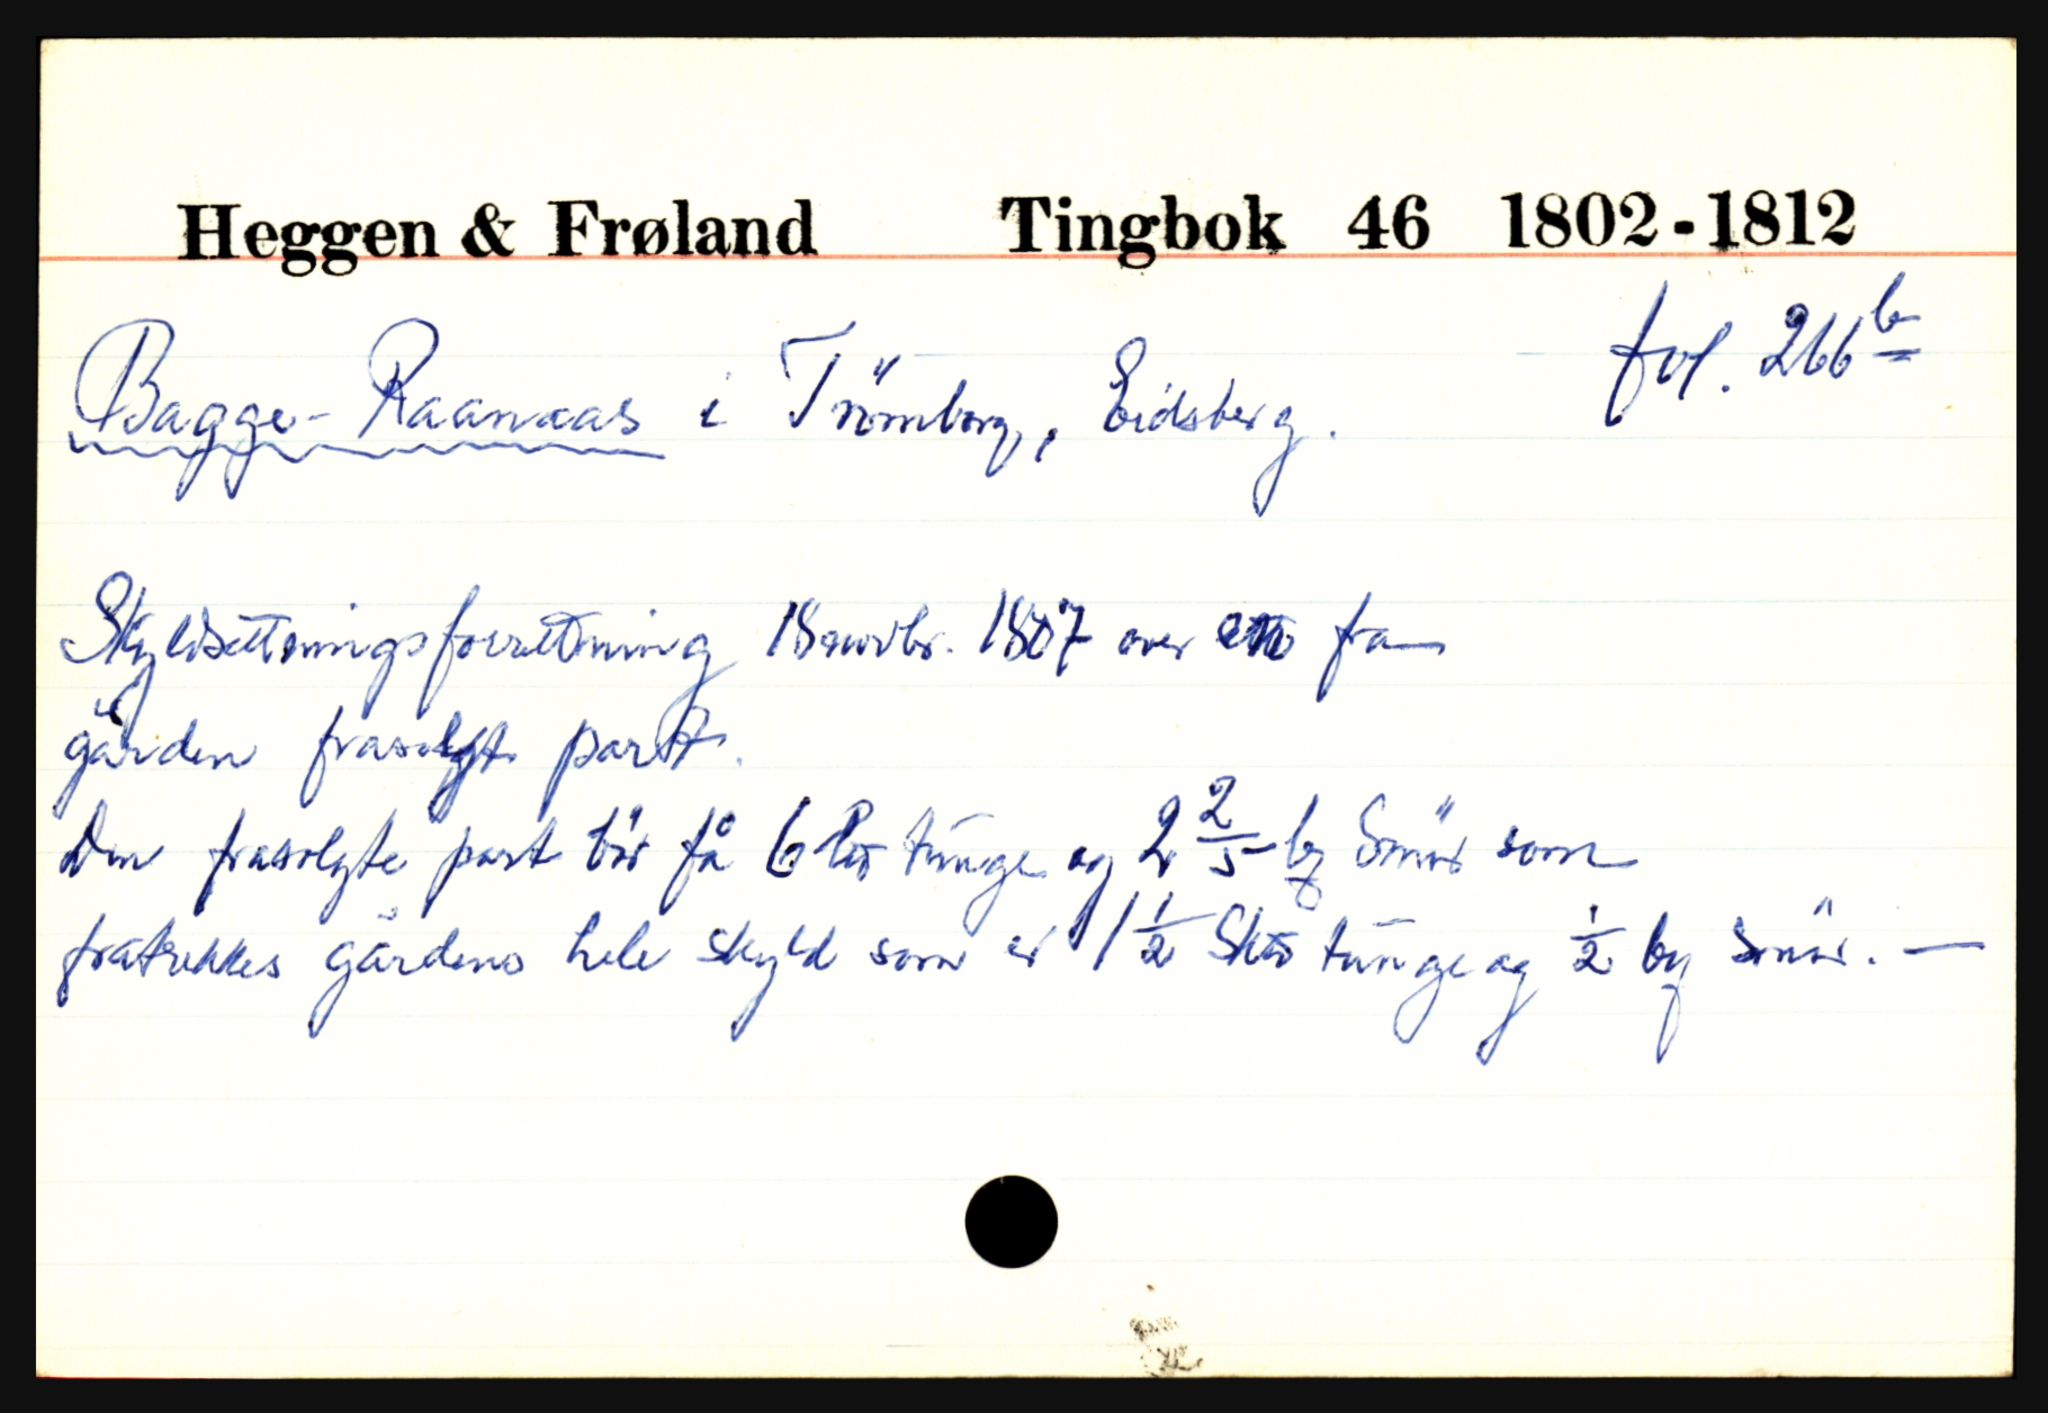 Heggen & Frøland Tingbok 46 1802-1812
fol. 266b
Bagge-Raanaas i Trömborg, Eidsberg.
Skyldsettningsforrettning 18 novbr. 1807 over en fra
gården frasolgt part.
Den frasolgte part bör få 6 tunge og 2 2/5 bg Smör som
fratrekkes gårdens hele skyld som er 1 1/2 Skp tunge og 1/2 bg smör. —